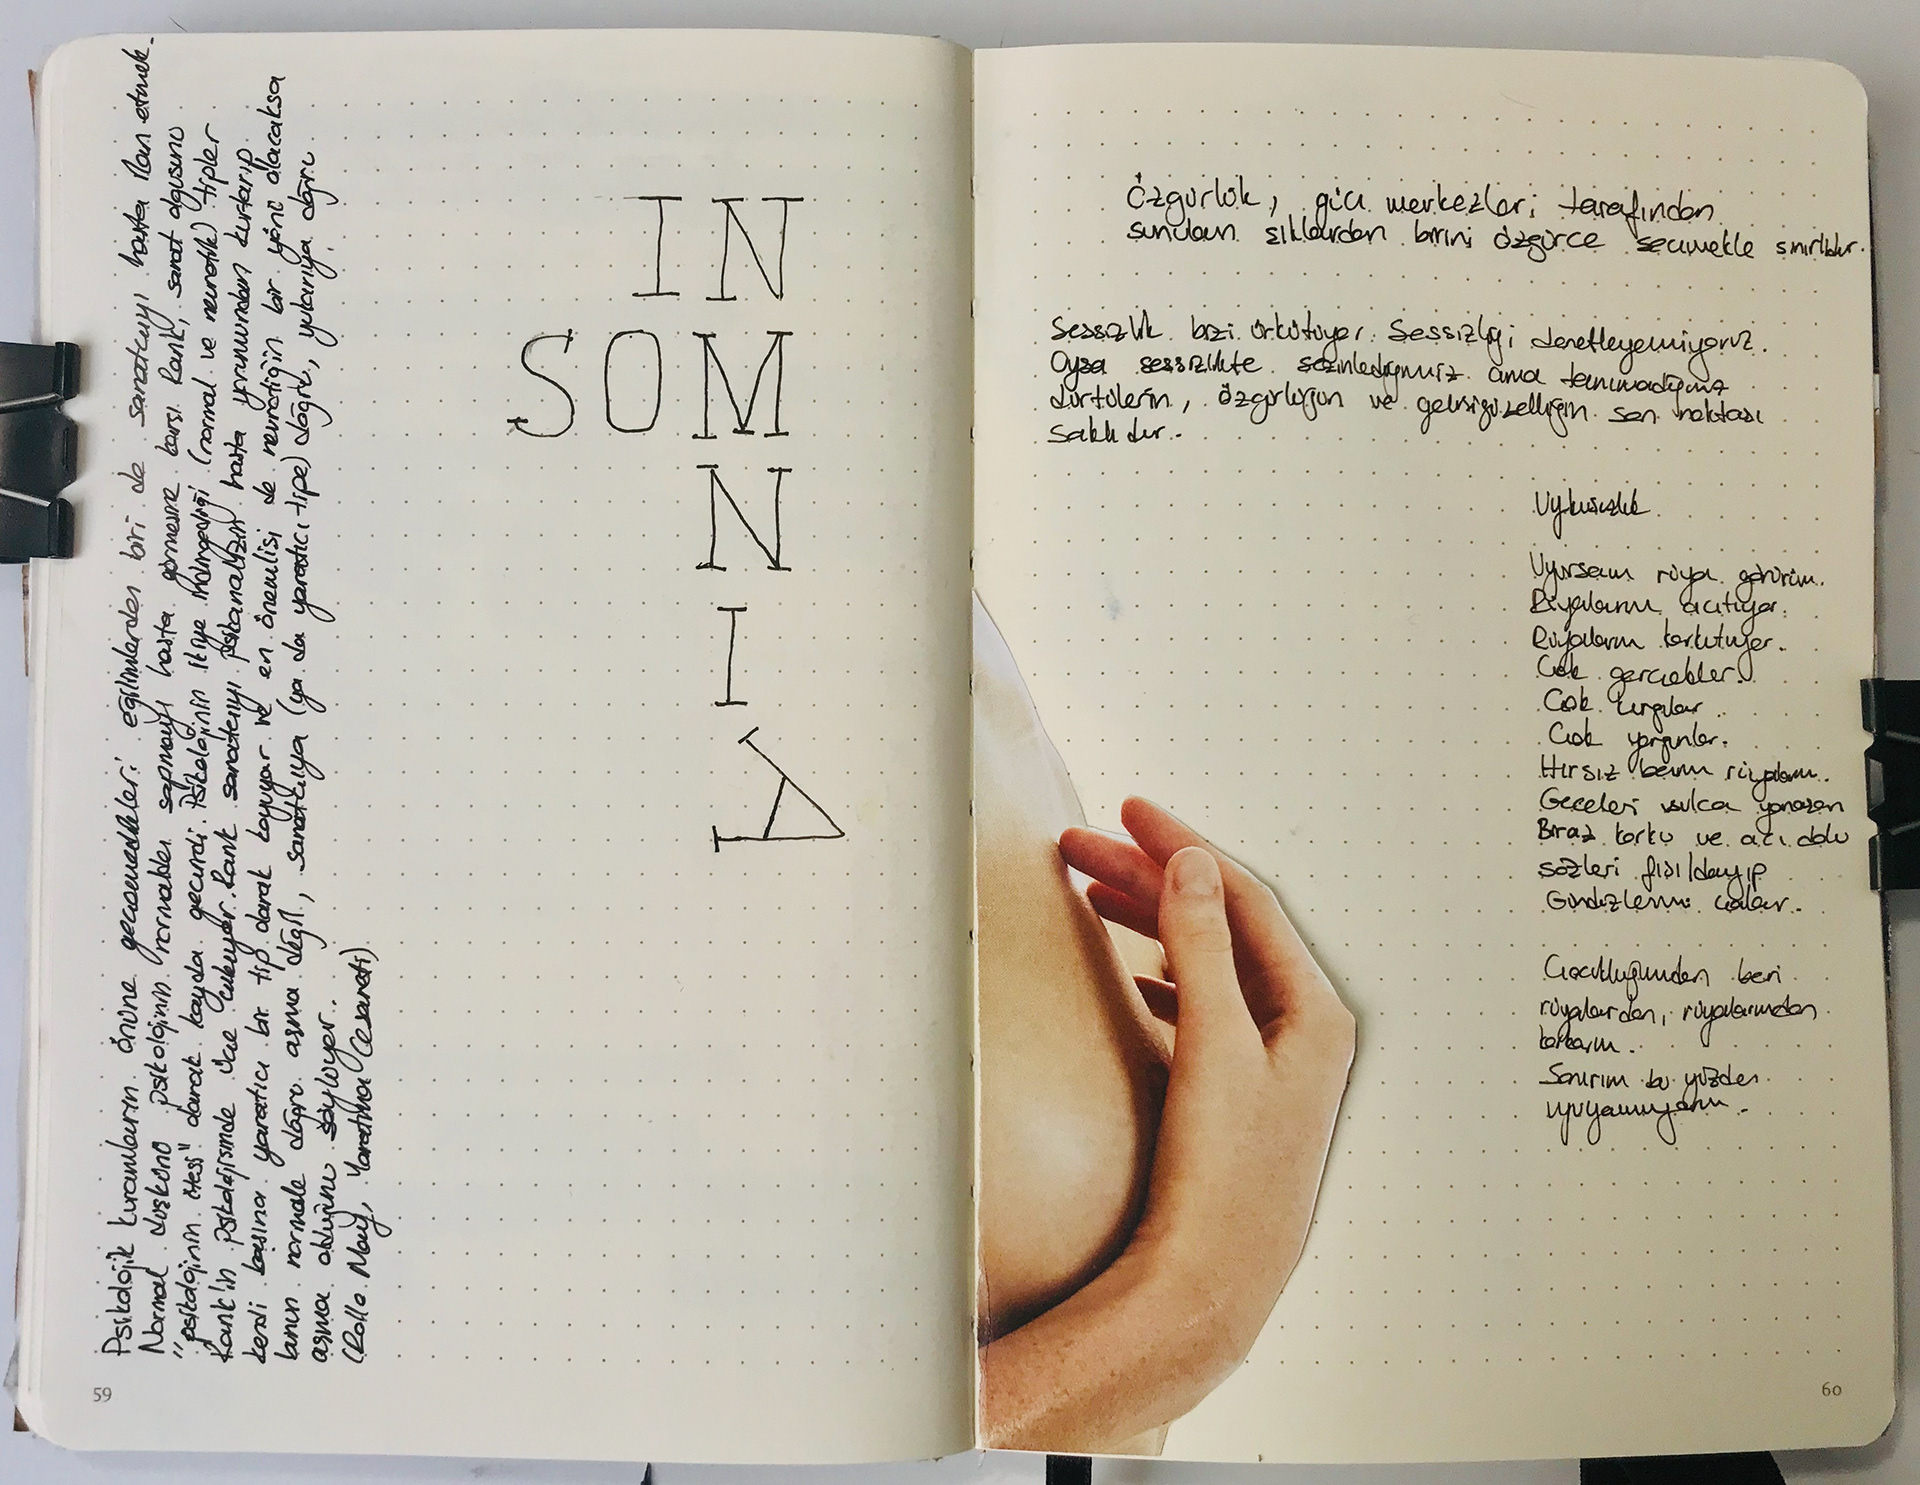 Psikolojik kuramların önüne geçemedikleri eğilimlerden biri de sanatçıyı hasta ilan etmek.
Normal düşkünü psikolojinin normalden sapmayı hasta görmesine karşı Rank, sanat olgusunu
"psikolojinin ötesi" olarak kayda geçirdi. Psikolojinin ikiye indirgediği (normal ve nevrotik) tipler
Rank'ın psikolojisinde üçe çıkıyor. Rank sanatçıyı psikanalizin hasta yorumundan kurtarıp
kendi başına yaratıcı bir tip olarak koyuyor ve en önemlisi de nevrotiğin bir yönü olacaksa
bunun normale doğru aşma değil, sanatçıya (ya da yaratıcı tipe) doğru, yukarıya doğru
aşma olduğunu söylüyor.
(Rollo May, Yaratma Cesareti)
IN
SOM
N
I
A
59
Özgürlük, güç merkezleri tarafından
sunulan şıklardan birini özgürce seçmekle sınırlıdır.
Sessizlik bizi ürkütüyor. Sessizliği denetleyemiyoruz.
Oysa sessizlikte sezinlediğimiz ama tanımadığımız
dürtülerin, özgürlüğün ve gelişigüzelliğin son noktası
saklıdır.
Uykusuzluk
Uyursam rüya görürüm.
Rüyalarım acıtıyor.
Rüyalarım korkutuyor.
Çok gerçekler.
Çok kırgınlar
Çok yorgunlar.
Hırsız benim rüyalarım.
Geceleri usulca yanaşan
Biraz korku ve acı dolu
sözleri fısıldayıp
Gündüzlerimi çalar.
Çocukluğumdan beri
rüyalardan, rüyalarımdan
korkarım.
Sanırım bu yüzden
uyuyamıyorum.
60